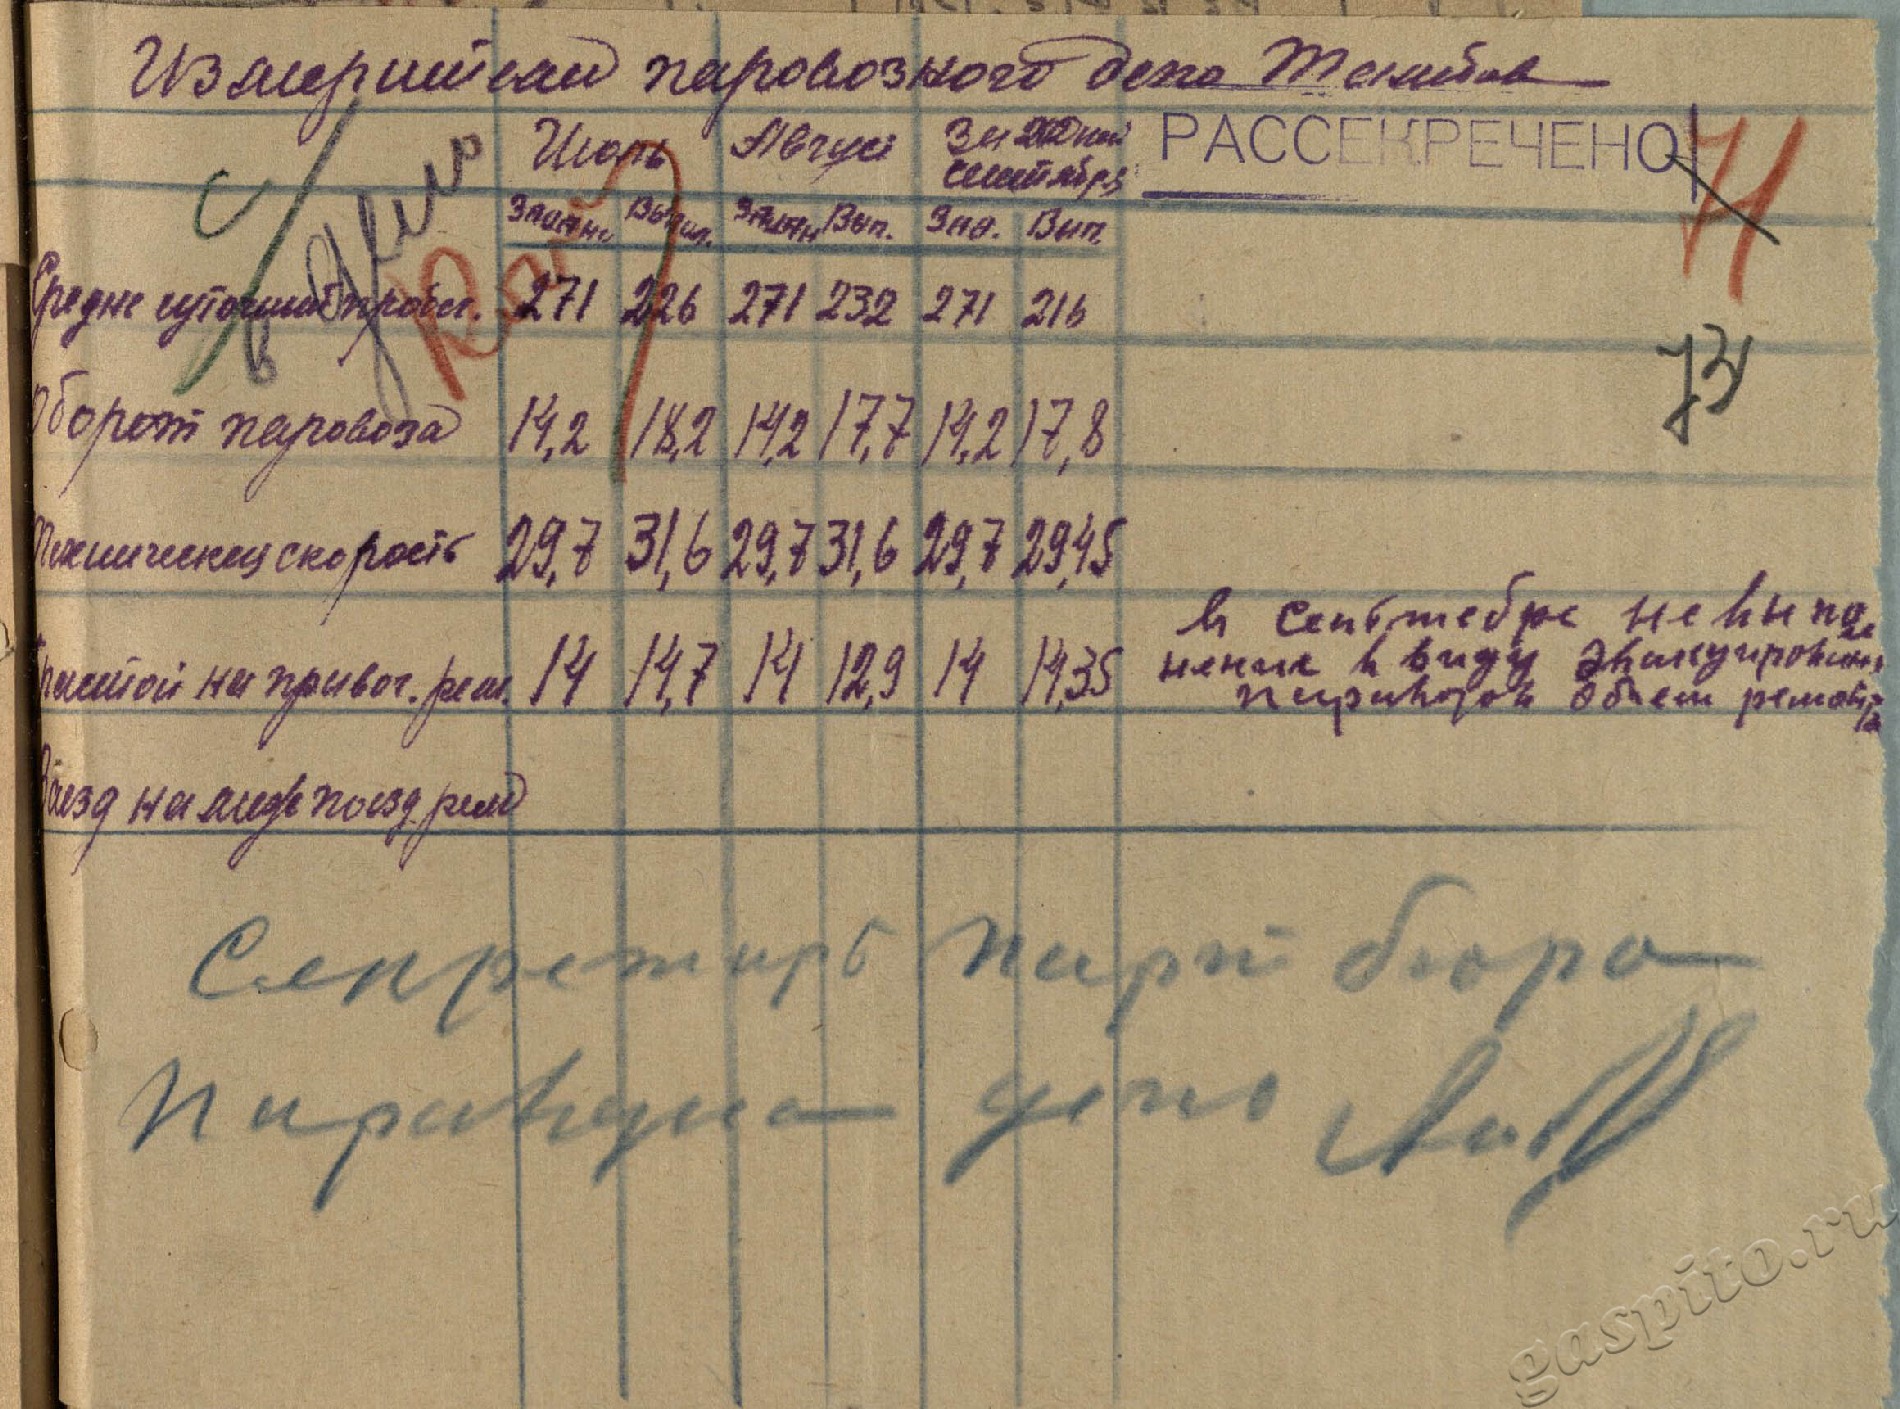 Измерители паровозного депо Тамбов
РАССЕКРЕЧЕНО
71
Июль Август За дней сентября
Задан Выпол. Задан Вып. Зад. Вып.
Средне суточный пробег. 271 226 271 232 271 216
73
Оборот паровоза 14,2 18,2 14,2 17,7 14,2 17,8
Техническая скорость 29,7 31,6 29,7 31,6 29,7 29,45
Простой на промыв. рем. 14 14,7 14 12,9 14 14,35
В сентебре не выпол
нение в виду эвакуирован
паравозов обьем ремонта
Заезд на межпоезд. рем
в дело
Секретарь парт бюро
Паравозна депо
gaspito.ru